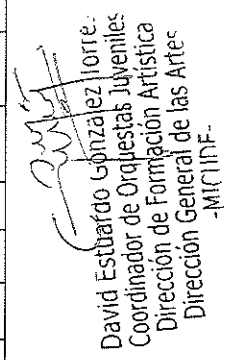 David Estuardo González Torre.
Coordinador de Orquestas Juveniles
Dirección de Formación Artística
Dirección General de las Artes
-MICUDE-